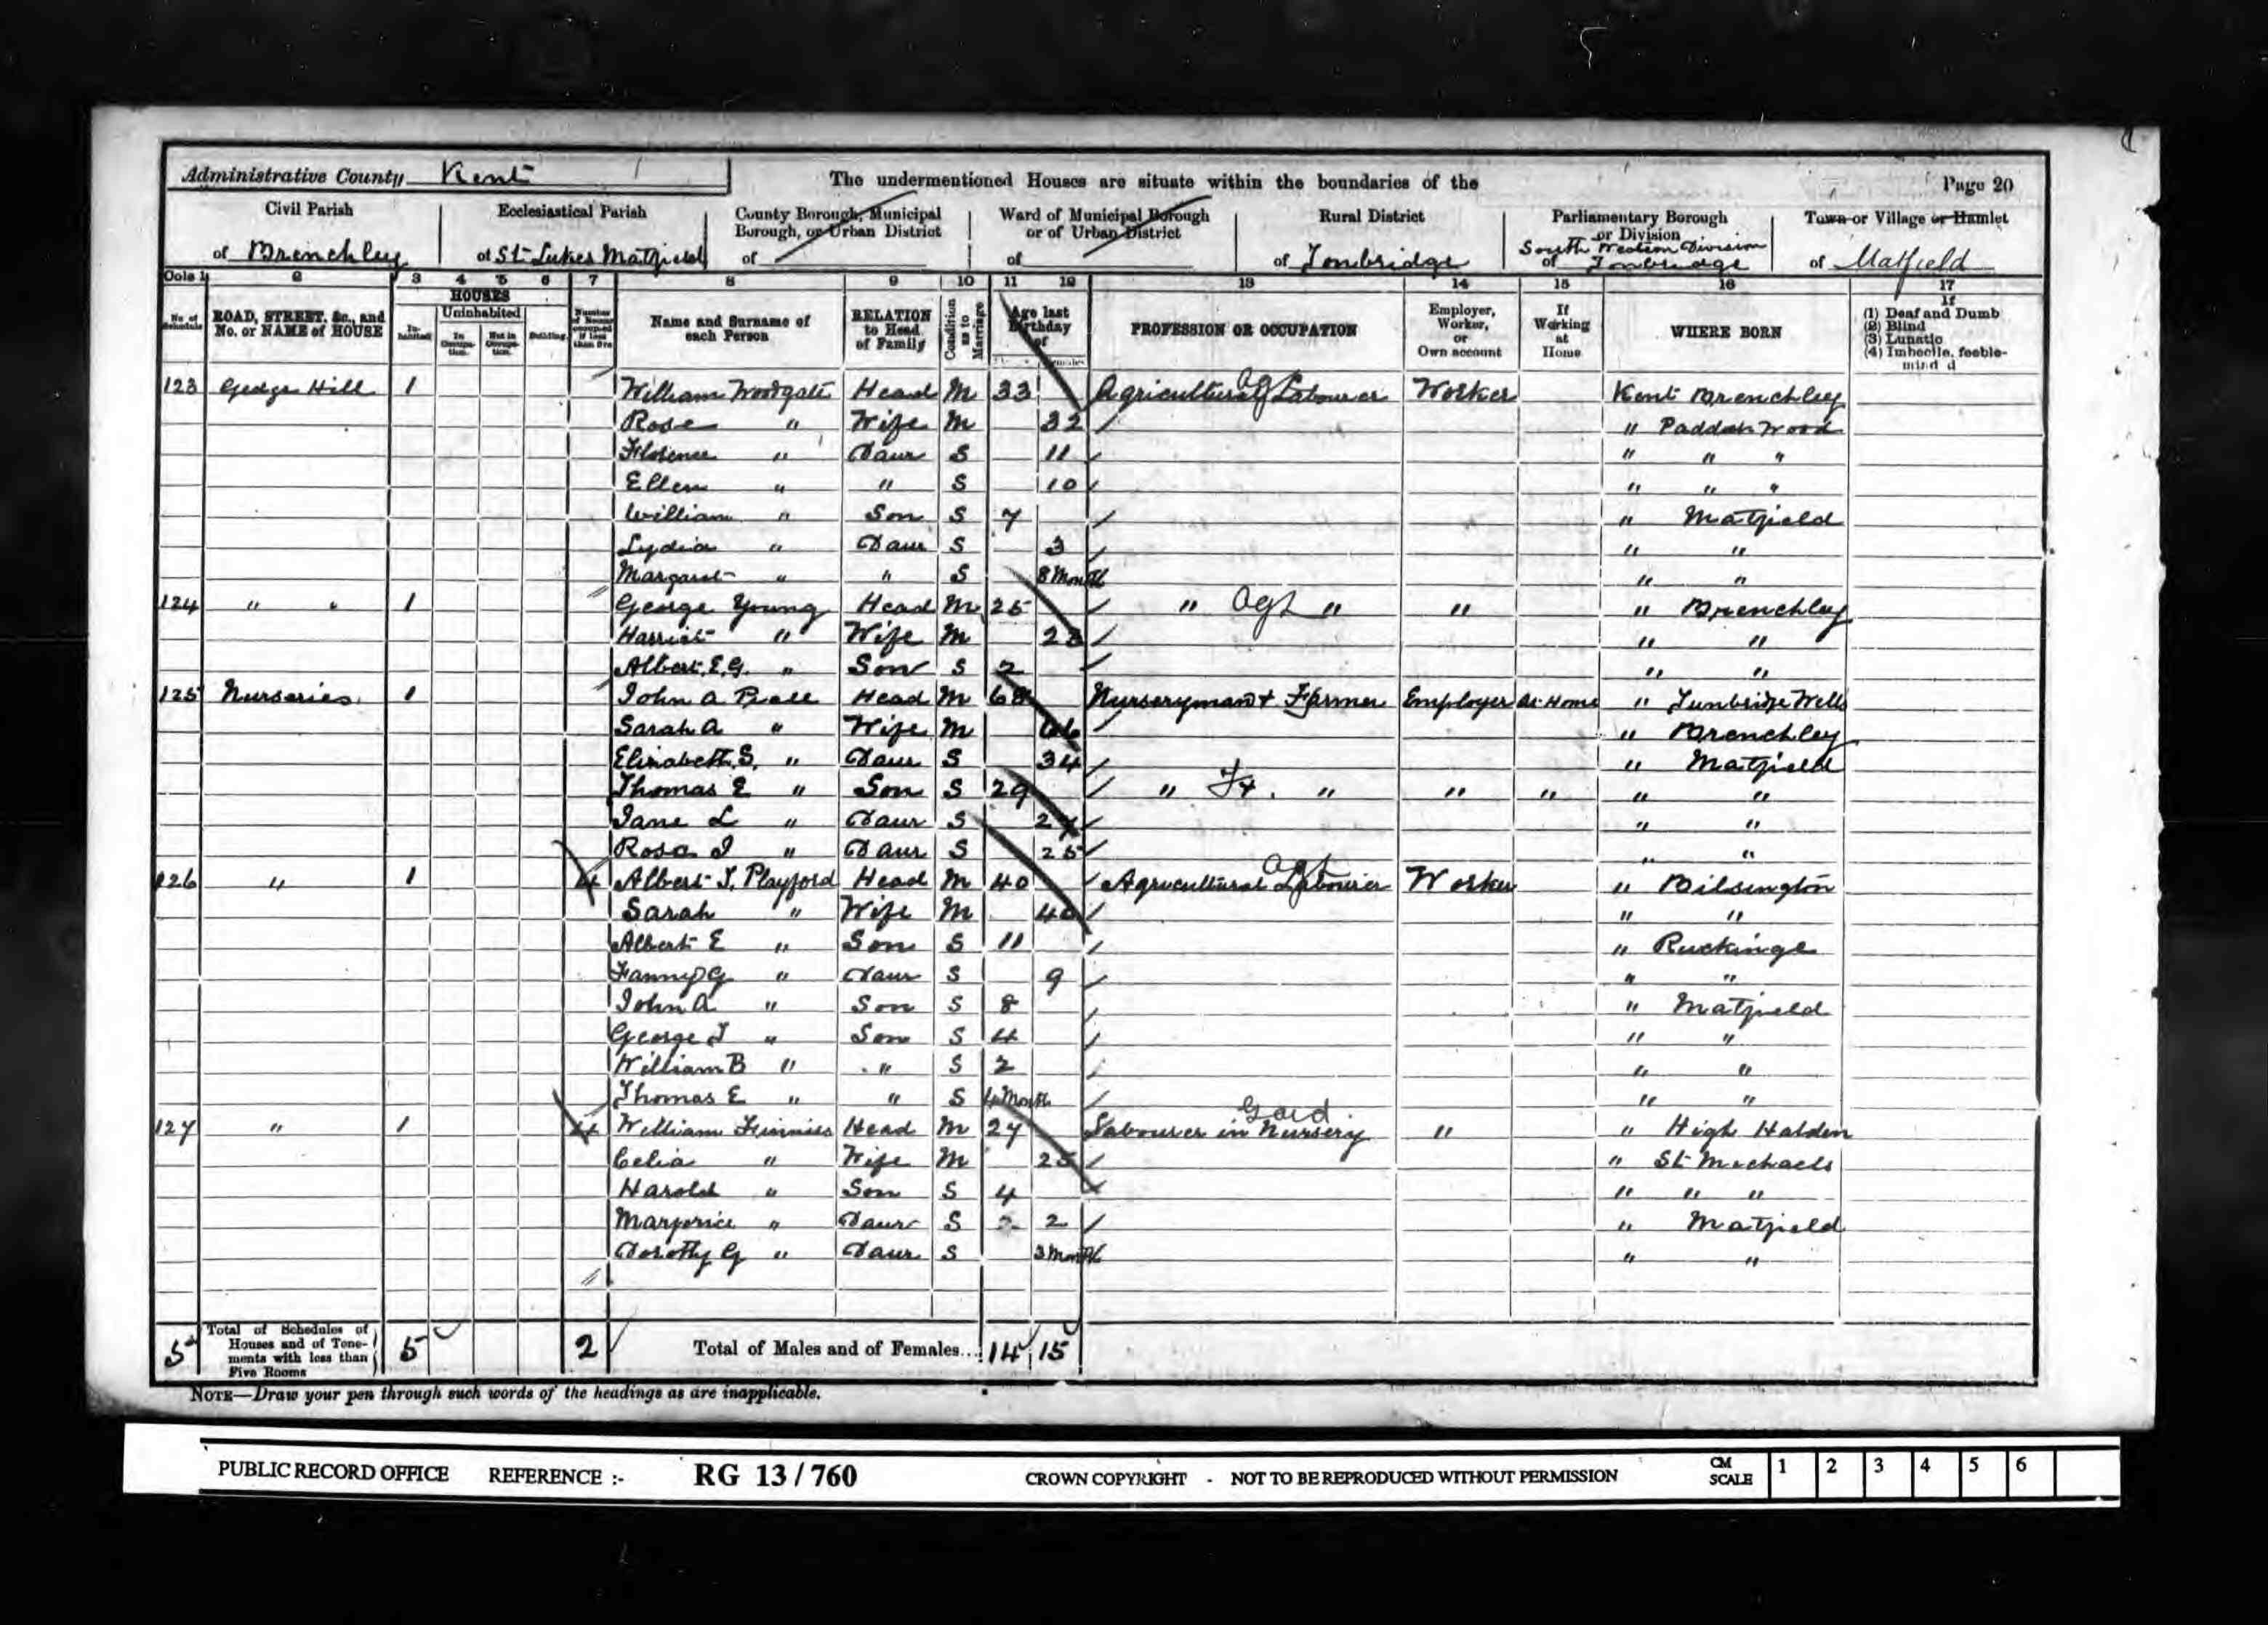 Administrative County Kent
The undermentioned Houses are situate within the boundaries of the
Page 20
Civil Parish of Brenchley
Ecclesiastical Parish of St Lukes Matfield
County Borough, Municipal Borough, or Urban District of
Ward of Municipal Borough or of Urban District of
Rural District of Tonbridge
Parliamentary Borough or Division of South Western Division Tonbridge
Town or Village or Hamlet of Matfield
Cols 1 2 3 4 5 6 7 8 9 10 11 12 13 14 15 16 17
No. of Schedule
ROAD, STREET, &c., and No. or NAME of HOUSE
HOUSES
Inhabited
Uninhabited
In Occupation.
Not in Occupation.
Building.
Number of Rooms occupied if less than five
Name and Surname of each Person
RELATION to Head of Family
Condition as to Marriage
Age last Birthday of
PROFESSION OR OCCUPATION
Employer, Worker, or Own account
If Working at Home
WHERE BORN
If (1) Deaf and Dumb (2) Blind (3) Lunatic (4) Imbecile, feeble-mind d
123 Gedge Hill 1 William Woodgate Head M 33 Agricultural Labourer Agl Worker Kent Brenchley
Rose " Wife M 32 " Paddock Wood
Florence " Daur S 11 " " "
Ellen " " S 10 " " "
William " Son S 7 " Matfield
Lydia " Daur S 3 " "
Margaret " " S 8 Month " "
124 " " 1 George Young Head M 25 " Agl " " " Brenchley
Harriet " Wife M 23 " "
Albert E.G. " Son S 2 " "
125 Nurseries 1 John A Head M 68 Nurseryman & Farmer Employer At Home " Tunbridge Wells
Sarah A " Wife M 66 " Brenchley
Elizabeth S. " Daur S 34 " Matfield
Thomas E " Son S 29 " " " " " "
Jane L " Daur S 27 " "
Rosa I " Daur S 25 " "
126 " 1 4 Albert J. Playford Head M 40 Agricultural Labourer Agl Worker " Bilsington
Sarah " Wife M 40 " "
Albert E " Son S 11 " Ruckinge
Fanny G " Daur S 9 " "
John A " Son S 8 " Matfield
George J " Son S 4 " "
William B " " S 2 " "
Thomas E " " S 4 Month " "
127 " 1 4 William Head M 27 Labourer in Nursery Gard " " High Halden
Celia " Wife M 25 " St Michaels
Harold " Son S 4 " " "
Marjorie " Daur S 2 " Matfield
Dorothy G " Daur S 3 Month " "
5 Total of Schedules of Houses and of Tenements with less than Five Rooms 5 2 Total of Males and of Females... 14 15
NOTE—Draw your pen through such words of the headings as are inapplicable.
PUBLIC RECORD OFFICE REFERENCE :- RG 13 / 760 CROWN COPYRIGHT - NOT TO BE REPRODUCED WITHOUT PERMISSION CM SCALE 1 2 3 4 5 6